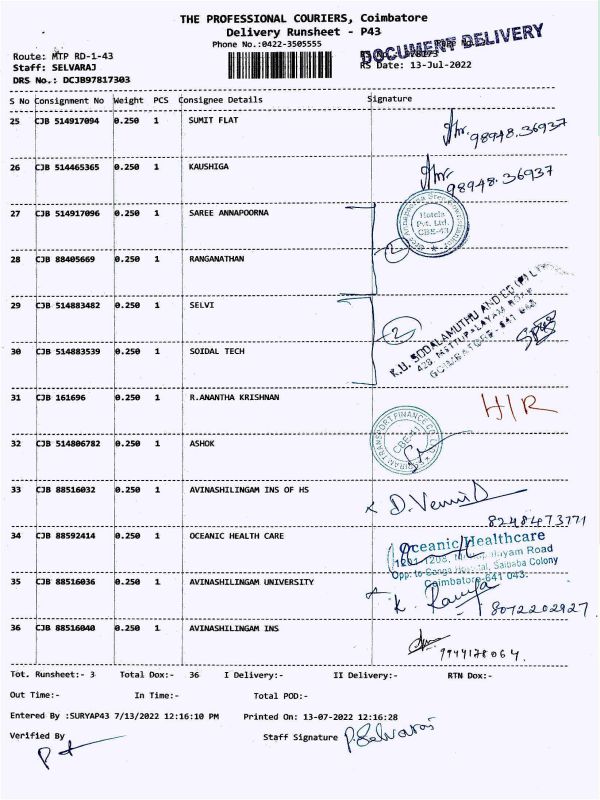 THE PROFESSIONAL COURIERS, Coimbatore
Delivery Runsheet - P43
Phone No.:0422-3505555
DOCUMENT DELIVERY
Route: MTP RD-1-43
Staff: SELVARAJ
RS Date: 13-Jul-2022
DRS No.: DCJB97817303
S No Consignment No Weight PCS Consignee Details Signature
25 CJB 514917094 0.250 1 SUMIT FLAT 98948.36937
26 CJB 514465365 0.250 1 KAUSHIGA 98948.36937
27 CJB 514917096 0.250 1 SAREE ANNAPOORNA
Hotels
Pvt. Ltd.
CBE-43
2
28 CJB 88405669 0.250 1 RANGANATHAN
29 CJB 514883482 0.250 1 SELVI
2
K.U. SODALAMUTHU AND CO (P) LTD
428, METTUPALAYAM ROAD
COIMBATORE- 641 043
30 CJB 514883539 0.250 1 SOIDAL TECH
31 CJB 161696 0.250 1 R.ANANTHA KRISHNAN H/R
32 CJB 514806782 0.250 1 ASHOK
TRANSPORT FINANCE CO.
CBE-43
33 CJB 88516032 0.250 1 AVINASHILINGAM INS OF HS
8248473771
34 CJB 88592414 0.250 1 OCEANIC HEALTH CARE
Oceanic Healthcare
Road
Opp. to Ganga Hospital, Saibaba Colony
Coimbatore-641 043.
35 CJB 88516036 0.250 1 AVINASHILINGAM UNIVERSITY
K. Ramya 8072202927
36 CJB 88516040 0.250 1 AVINASHILINGAM INS
9944178064.
Tot. Runsheet:- 3 Total Dox:- 36 I Delivery:- II Delivery:- RTN Dox:-
Out Time:- In Time:- Total POD:-
Entered By :SURYAP43 7/13/2022 12:16:10 PM Printed On: 13-07-2022 12:16:28
Verified By Staff Signature P.Selvaraj